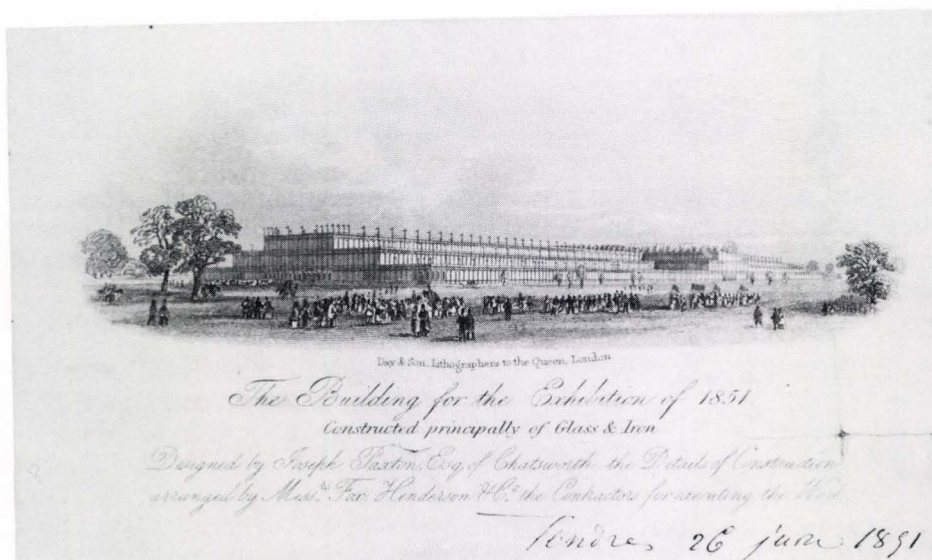 Day & Son, Lithographers to the Queen, London
The Building for the Exhibition of 1851
Constructed principally of Glass & Iron
Designed by Joseph Paxton, Esq. of Chatsworth the Details of Construction
arranged by Messrs. Fox, Henderson & Co. the Contractors for executing the Work
Londres 26 juin 1851